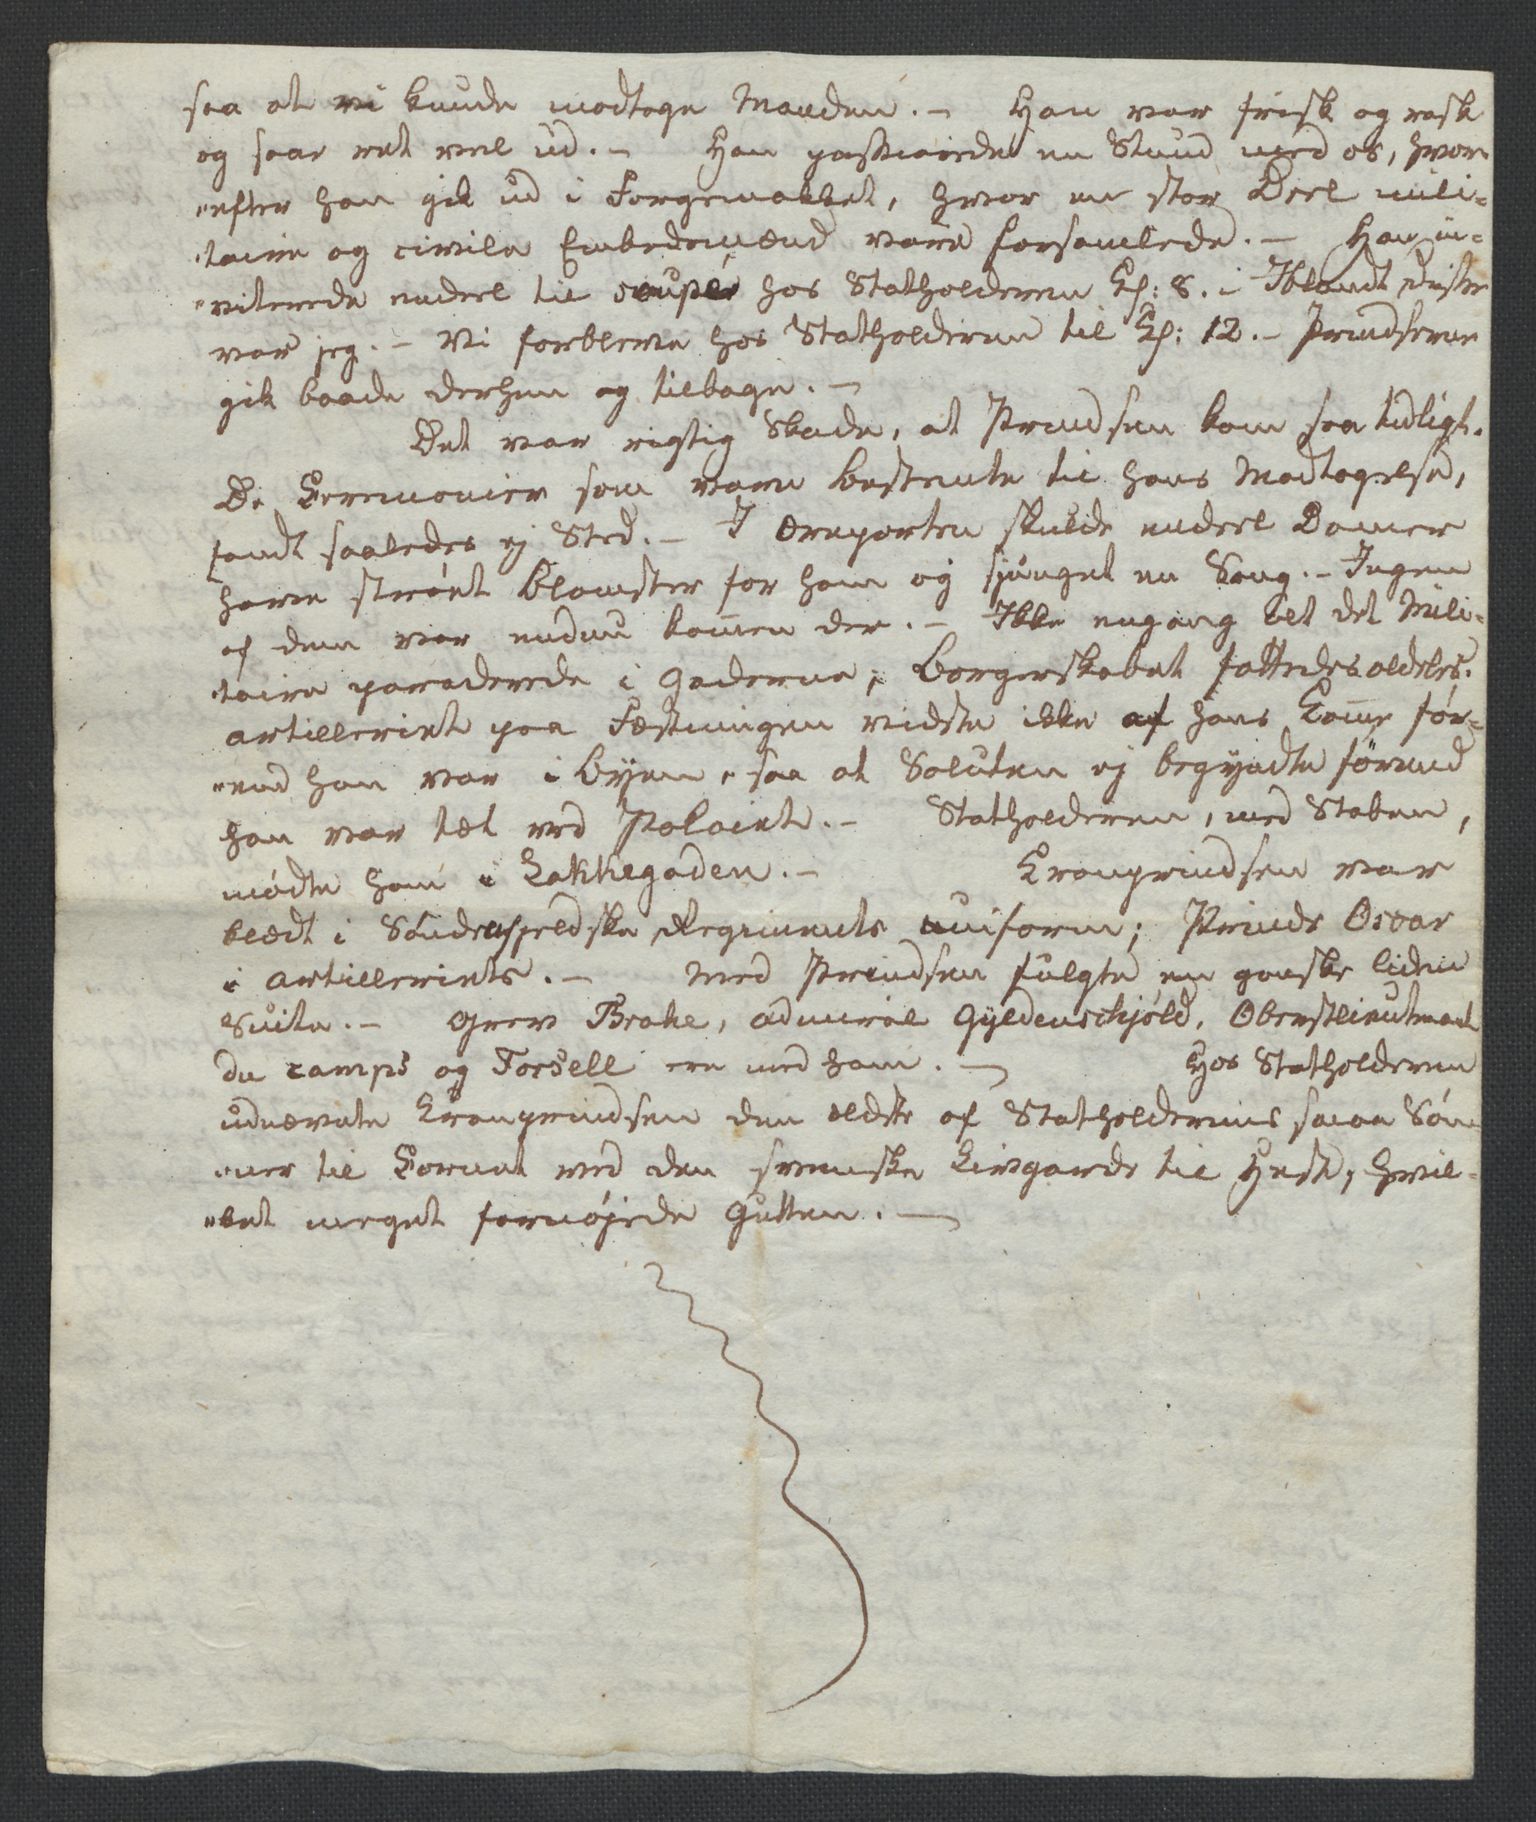 saa at vi kunde modtage Manden. – Han var frisk og rask
og saae ret vel ud. – Han passiarede en Stund med os, hvor-
"efter han gik ud i Forgemakket, hvor en stor Deel mili-
"taire og civile Embedsmænd vare forsamlede. – Han in-
"viterede endeel til souper hos Statholderen Kl: 8. – Iblandt disse
var jeg. – Vi forbleve hos Statholderen til Kl: 12. – Prindserne
gik baade derhen og tilbage. –
Det var rigtig Skade, at Prindsen kom saa tidligt.
De Ceremonier som vare bestemte til hans Modtagelse,
fandt saaledes ej Sted. – I Æreporten skulde endeel Damer
have strøet Blomster for ham og sjunget en Sang. – Ingen
af dem var endnu kom̄en der. – Ikke engang alt det Mili-
"taire paraderede i Gaderne; Borgerskabet fattedes aldeles.
Artilleriet paa Fæstningen vidste ikke af hans Kom̄e før-
"end han var i Byen, saa at Saluten ej begyndte førend
han var tæt ved Palaiet. – Statholderen, med Staben,
mødte ham i Lakkegaden. – Kronprindsen var
klædt i Søndenfjeldske Regiments uniform; Prinds Oscar
i Artilleriets. – Med Prindsen fulgte en ganske liden
Suite. – Grev Brahe, Admiral Gyldenschjöld, Oberstlieutnant
du camps og Forsell ere med ham. – Hos Statholderen
udnævnte Kronprindsen den ældste af Statholderens smaa Søn-
"ner til Cornet ved den svenske Livgarde til Hest, hvil-
"ket meget fornøjede Gutten. –